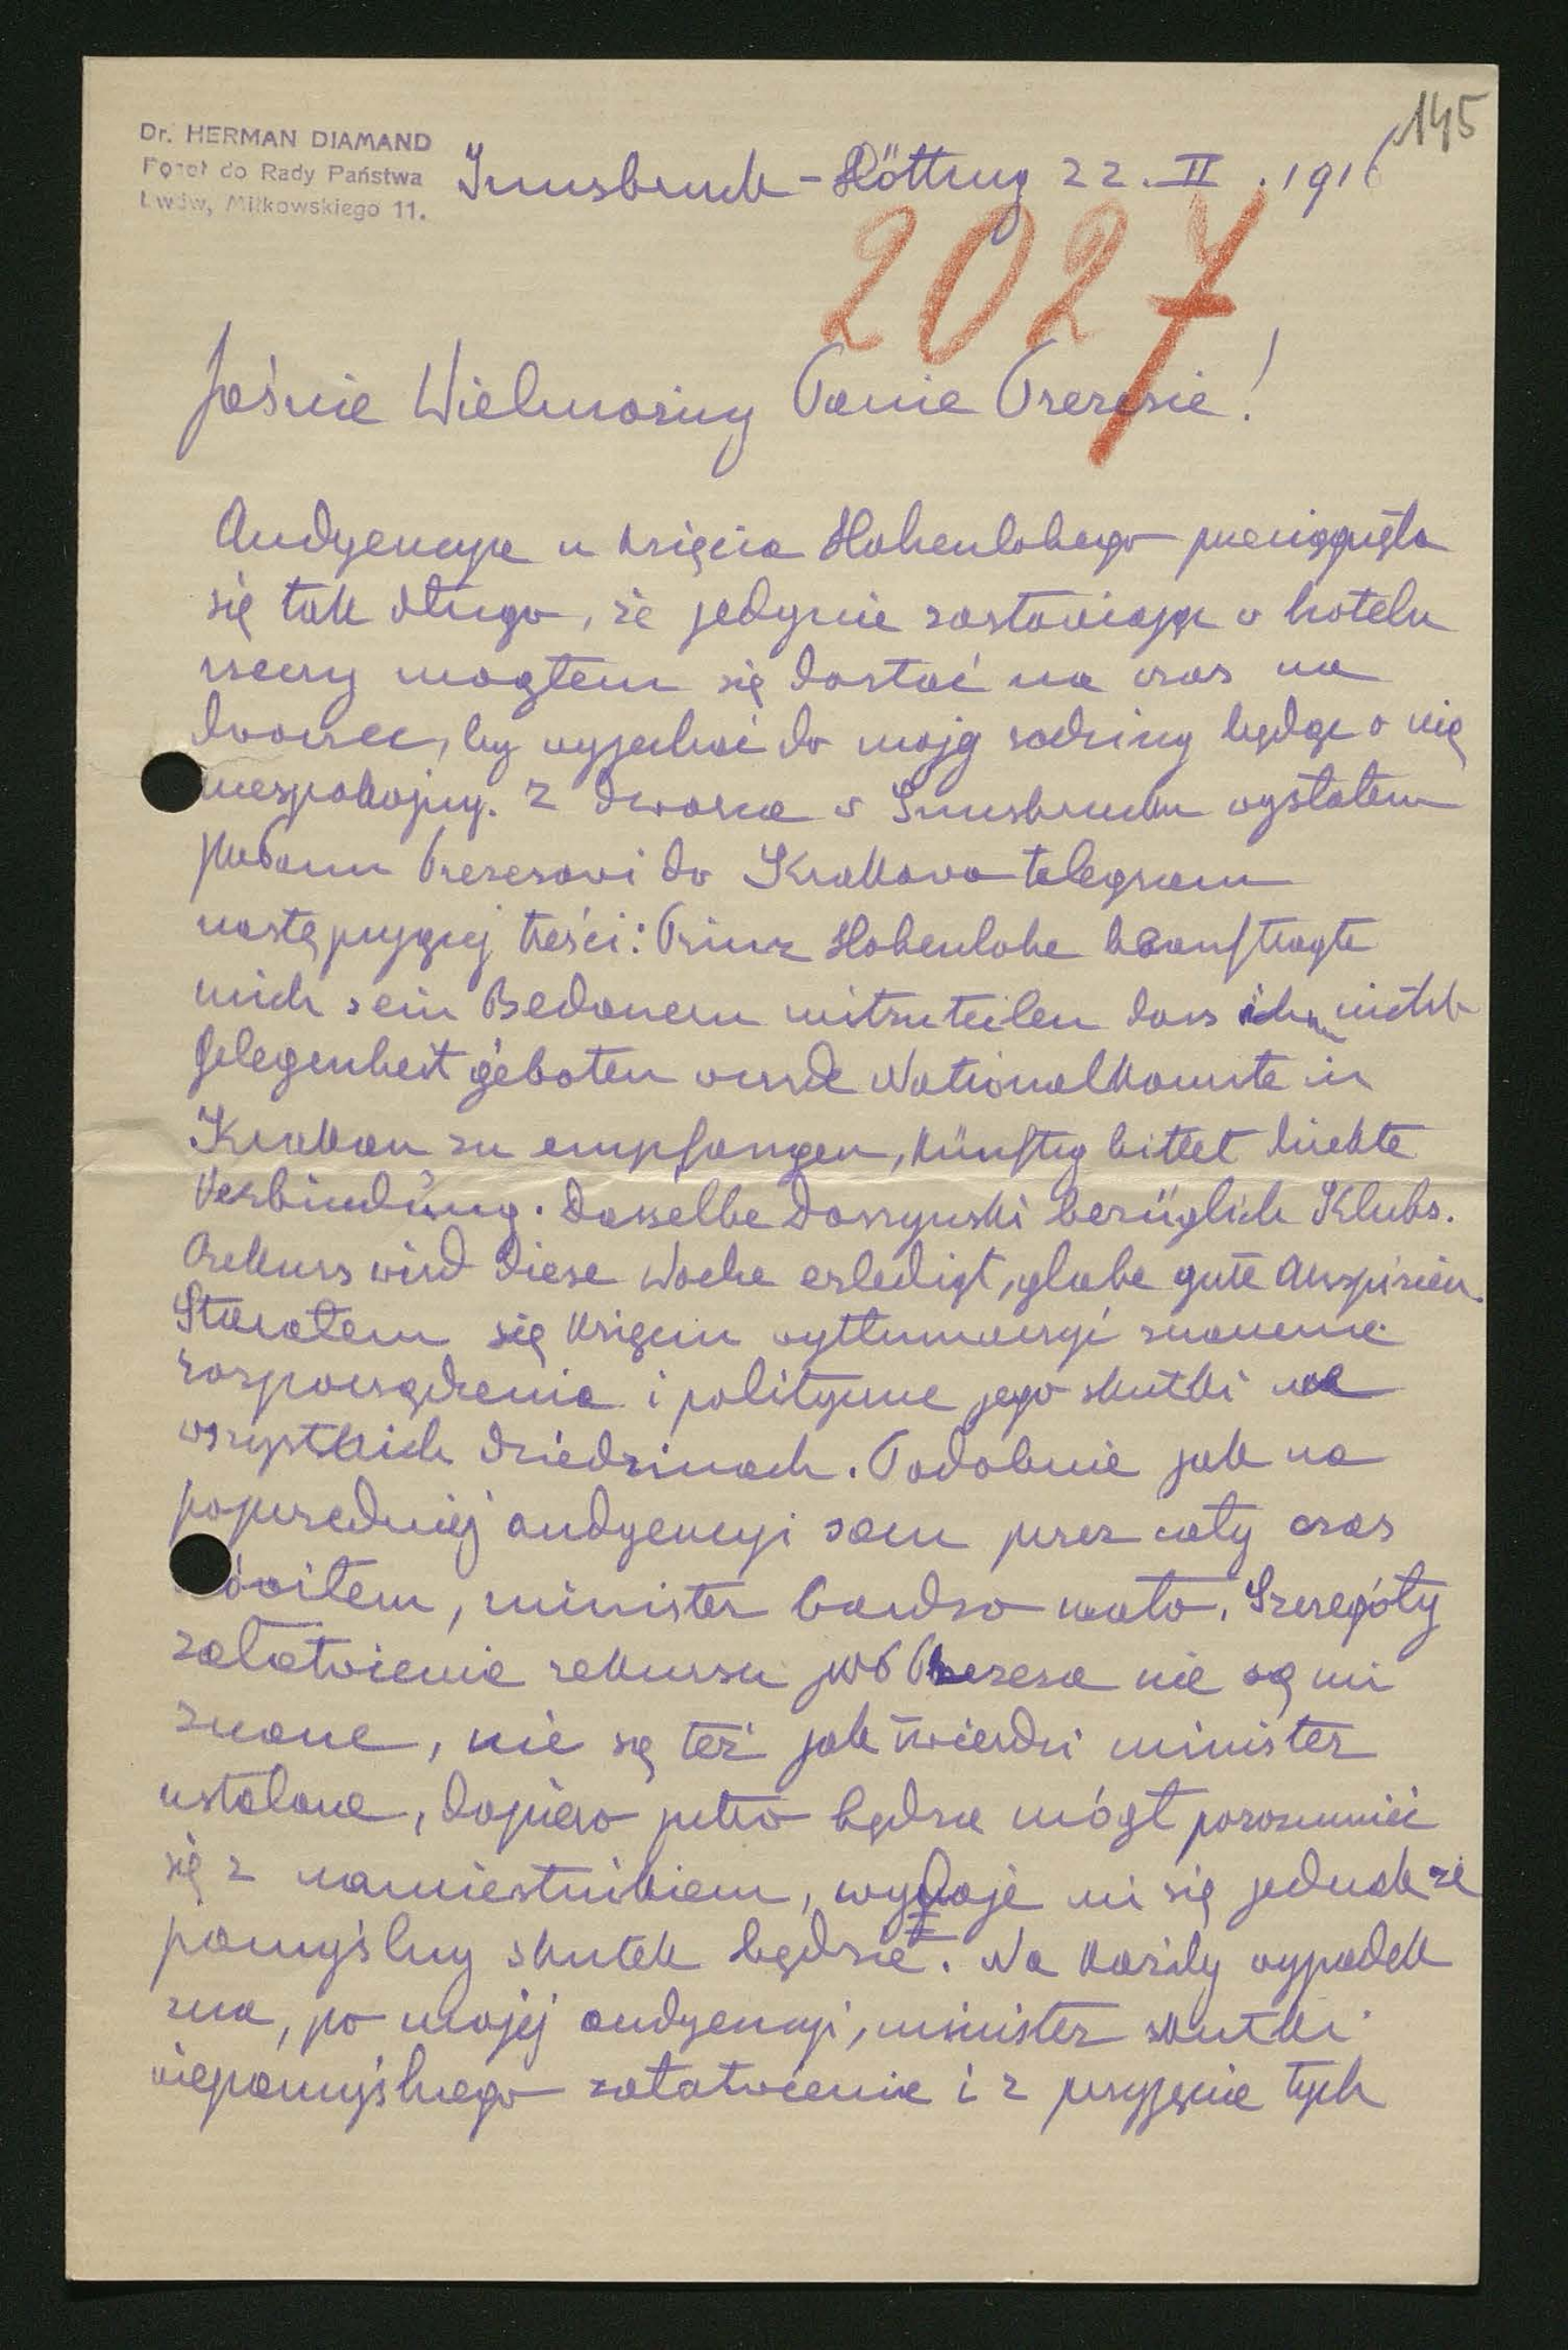 145
Dr. HERMAN DIAMAND
Poseł do Rady Państwa
Lwów, Miłkowskiego 11.
Innsbruck - Hötting 22. II. 1916
2027
Jaśnie Wielmożny Panie Prezesie!
Audyencya u księcia Hohenlohego przeciągnęła
się tak długo, że jedynie zostawiając w hotelu
rzeczy mogłem się dostać na czas na
dworzec, by wyjechać do mojej rodziny będąc o nię
niespokojny. Z dworca w Innsbrucku wysłałem
JWPanu Prezesowi do Krakowa telegram
następującej treści: Prinz Hohenlohe beauftragte
mich sein Bedauern mitzuteilen dass ihm nicht
Gelegenheit geboten wurde Nationalkomite in
Krakau zu empfangen, künftig bittet direkte
Verbindung. Dasselbe Daszynski bezüglich Klubs.
Rekurs wird diese Woche erledigt, glabe gute Auspizien.
Starałem się księciu wytłumaczyć znaczenie
rozporządzenia i polityczne jego skutki na
wszystkich dziedzinach. Podobnie jak na
poprzedniej audyencyi sam przez cały czas
mówiłem, minister bardzo mało. Szczegóły
załatwienia rekursu JWP Prezesa nie są mi
znane, nie są też jak twierdzi minister
ustalone, dopiero jutro będzie mógł porozumieć
się z namiestnikiem, wydaje mi się jednak że
pomyślny skutek będzie. Na każdy wypadek
zna, po mojej audyencyi, minister skutki
niepomyślnego załatwienia i z przyjęcia tych